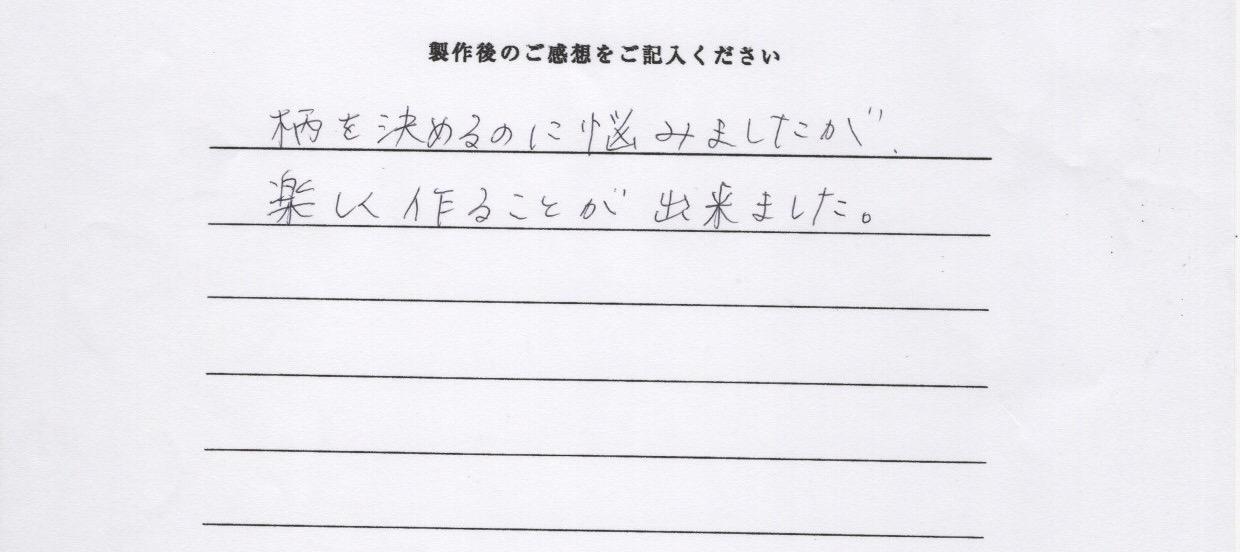 製作後のご感想をご記入ください
柄を決めるのに悩みましたが、
楽しく作ることが出来ました。